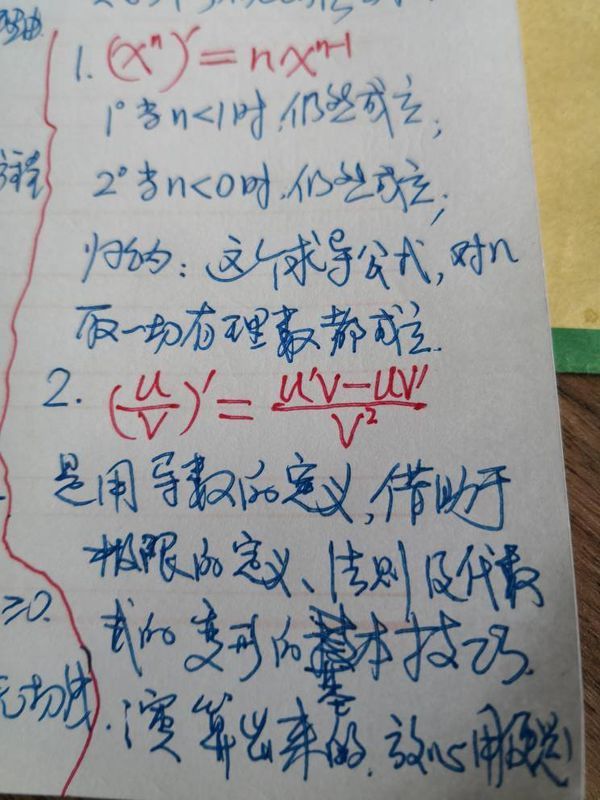 1. (xⁿ)′ = nxⁿ⁻¹
1° 当n<1时,仍然成立;
2° 当n<0时,仍然成立;
归纳:这个求导公式,对n
取一切有理数都成立.
2. (u/v)′ = (u′v-uv′)/v²
是用导数的定义,借助于
极限的定义、法则及代数
≥0.
式的变形的基本技巧.
无切线.
演算出来的,放心用便是!